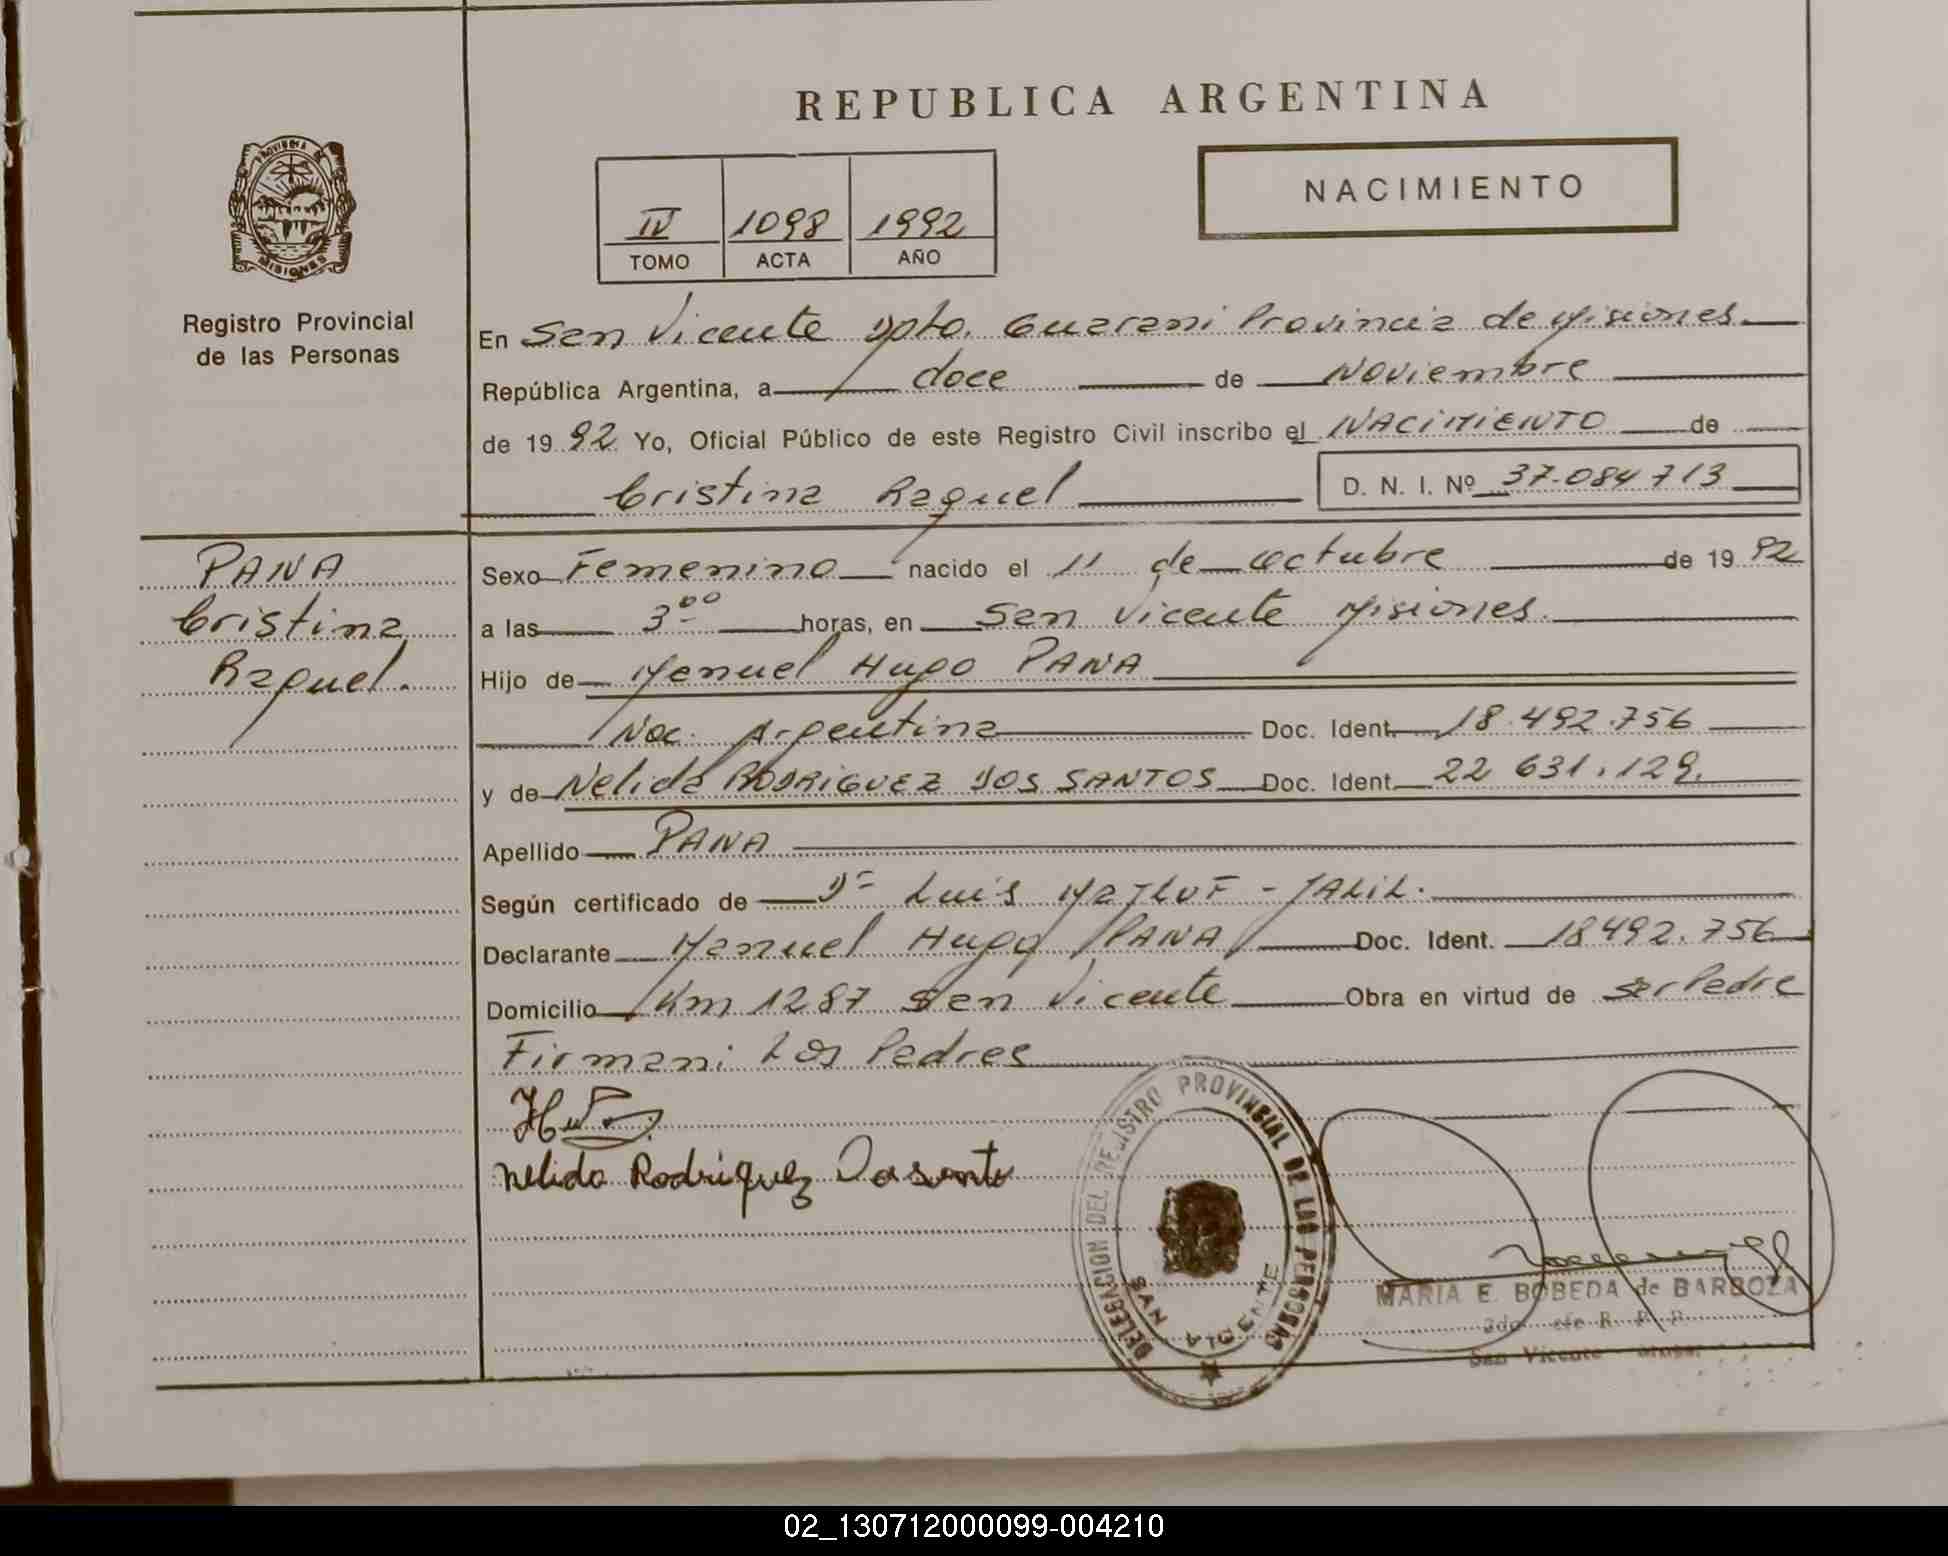 REPUBLICA ARGENTINA
PROVINCIA DE
MISIONES
Registro Provincial
de las Personas
IV 1098 1992
TOMO ACTA AÑO
NACIMIENTO
En San Vicente Dpto. Guarani Provincia de Misiones.
República Argentina, a doce de Noviembre
de 1992 Yo, Oficial Público de este Registro Civil inscribo el NACIMIENTO de
Cristina Raquel D. N. I. Nº 37.084.713
PANA
Cristina
Raquel.
Sexo Femenino nacido el 11 de octubre de 1992
a las 3°° horas, en San Vicente Misiones.
Hijo de Manuel Hugo PANA
Nac. Argentina Doc. Ident. 18.492.756
y de Nelida RODRIGUEZ DOS SANTOS Doc. Ident. 22 631.129.
Apellido PANA
Según certificado de Luis JALIL.
Declarante Manuel Hugo PANA Doc. Ident. 18492.756
Domicilio Km 1287 San Vicente Obra en virtud de ser Padre
Firman: Los Padres
Nelida Rodriguez Dosanto
DELEGACION DEL REGISTRO PROVINCIAL DE LAS PERSONAS
SAN VICENTE
MARIA E. BOBEDA de BARBOZA
San Vicente
02_130712000099-004210